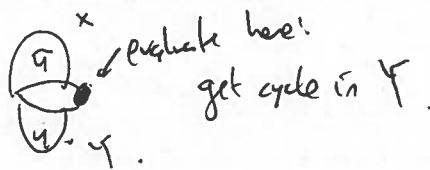 x
evaluate here:
get cycle in Y.